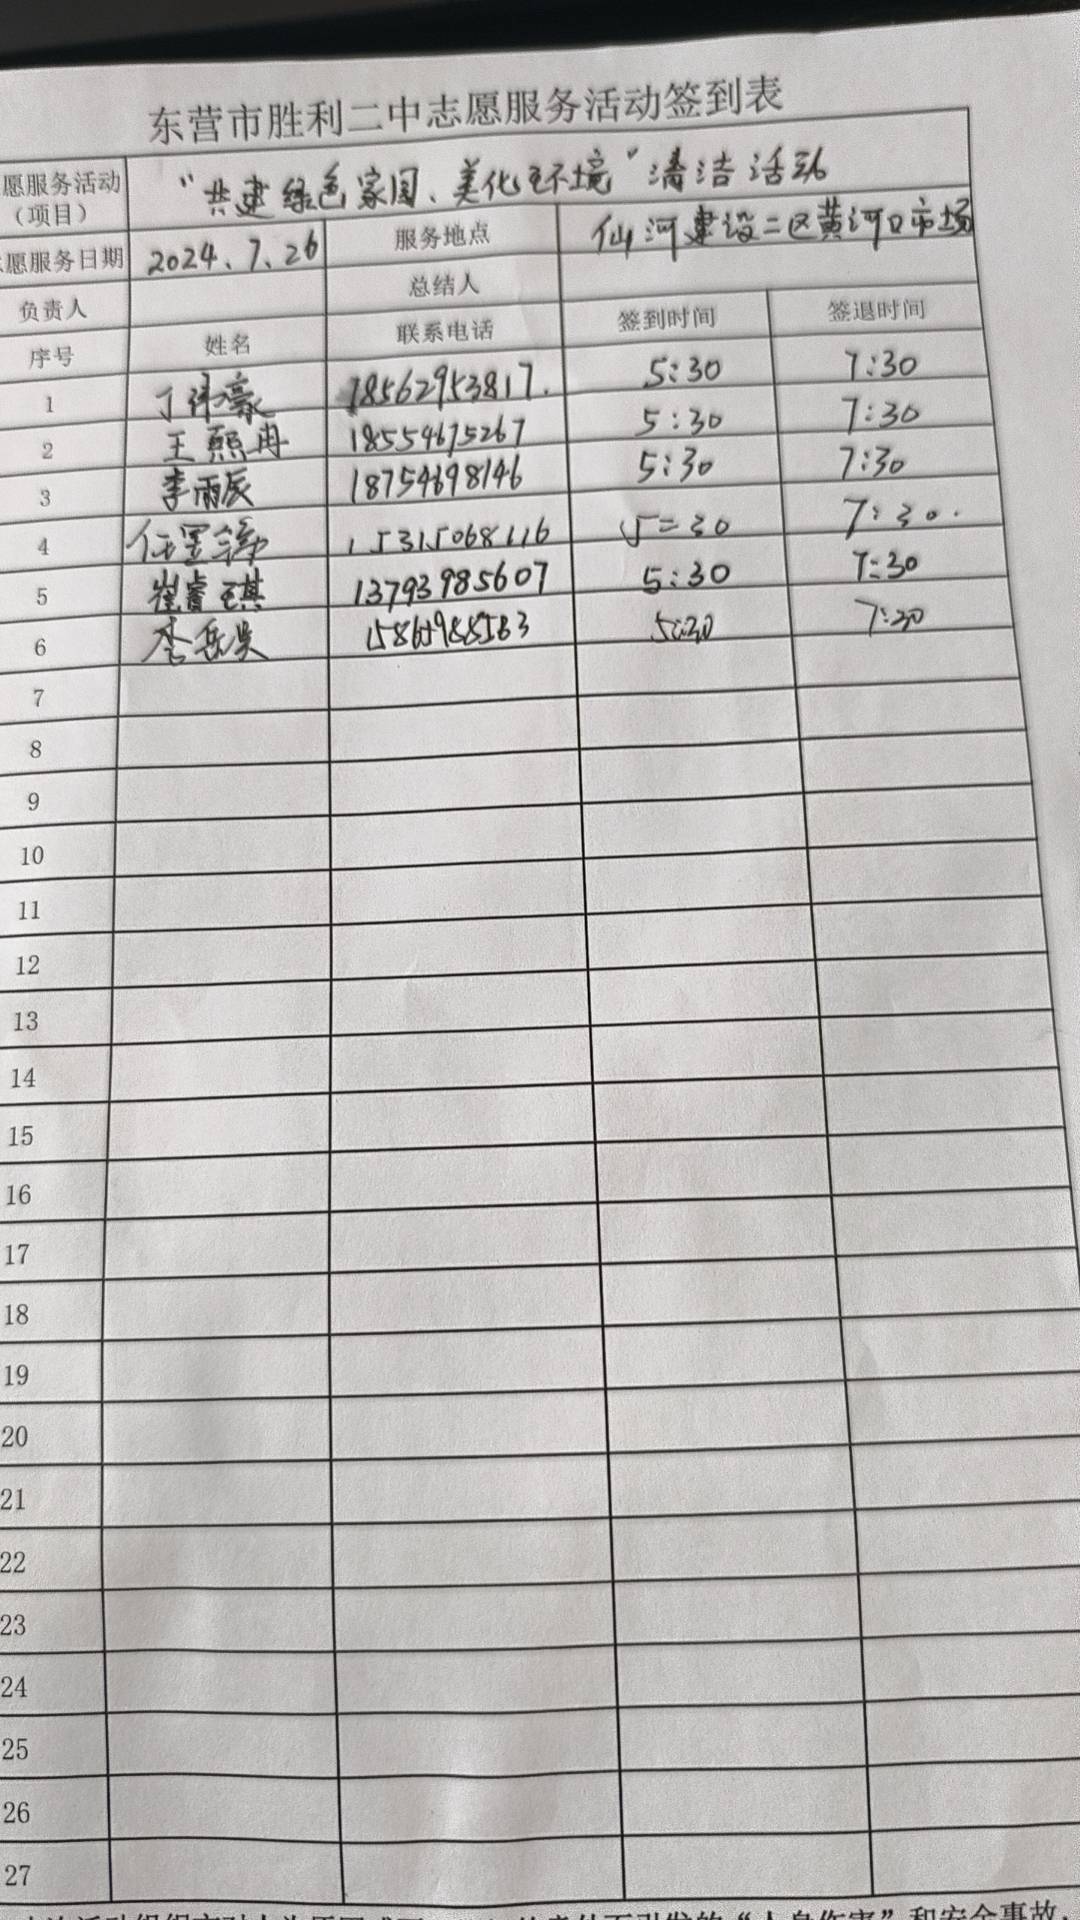 东营市胜利二中志愿服务活动签到表
愿服务活动（项目） “共建绿色家园、美化环境”清洁活动
愿服务日期 2024.7.26 服务地点 仙河建设二区黄河口市场
负责人 总结人
序号 姓名 联系电话 签到时间 签退时间
1 丁 豪 18562953817. 5:30 7:30
2 王熙冉 18554675267 5:30 7:30
3 李雨辰 18754698146 5:30 7:30
4 任墨 15315068116 5:30 7:30.
5 崔睿琪 13793985607 5:30 7:30
6 李岳昊 5:30 7:30
7
8
9
10
11
12
13
14
15
16
17
18
19
20
21
22
23
24
25
26
27